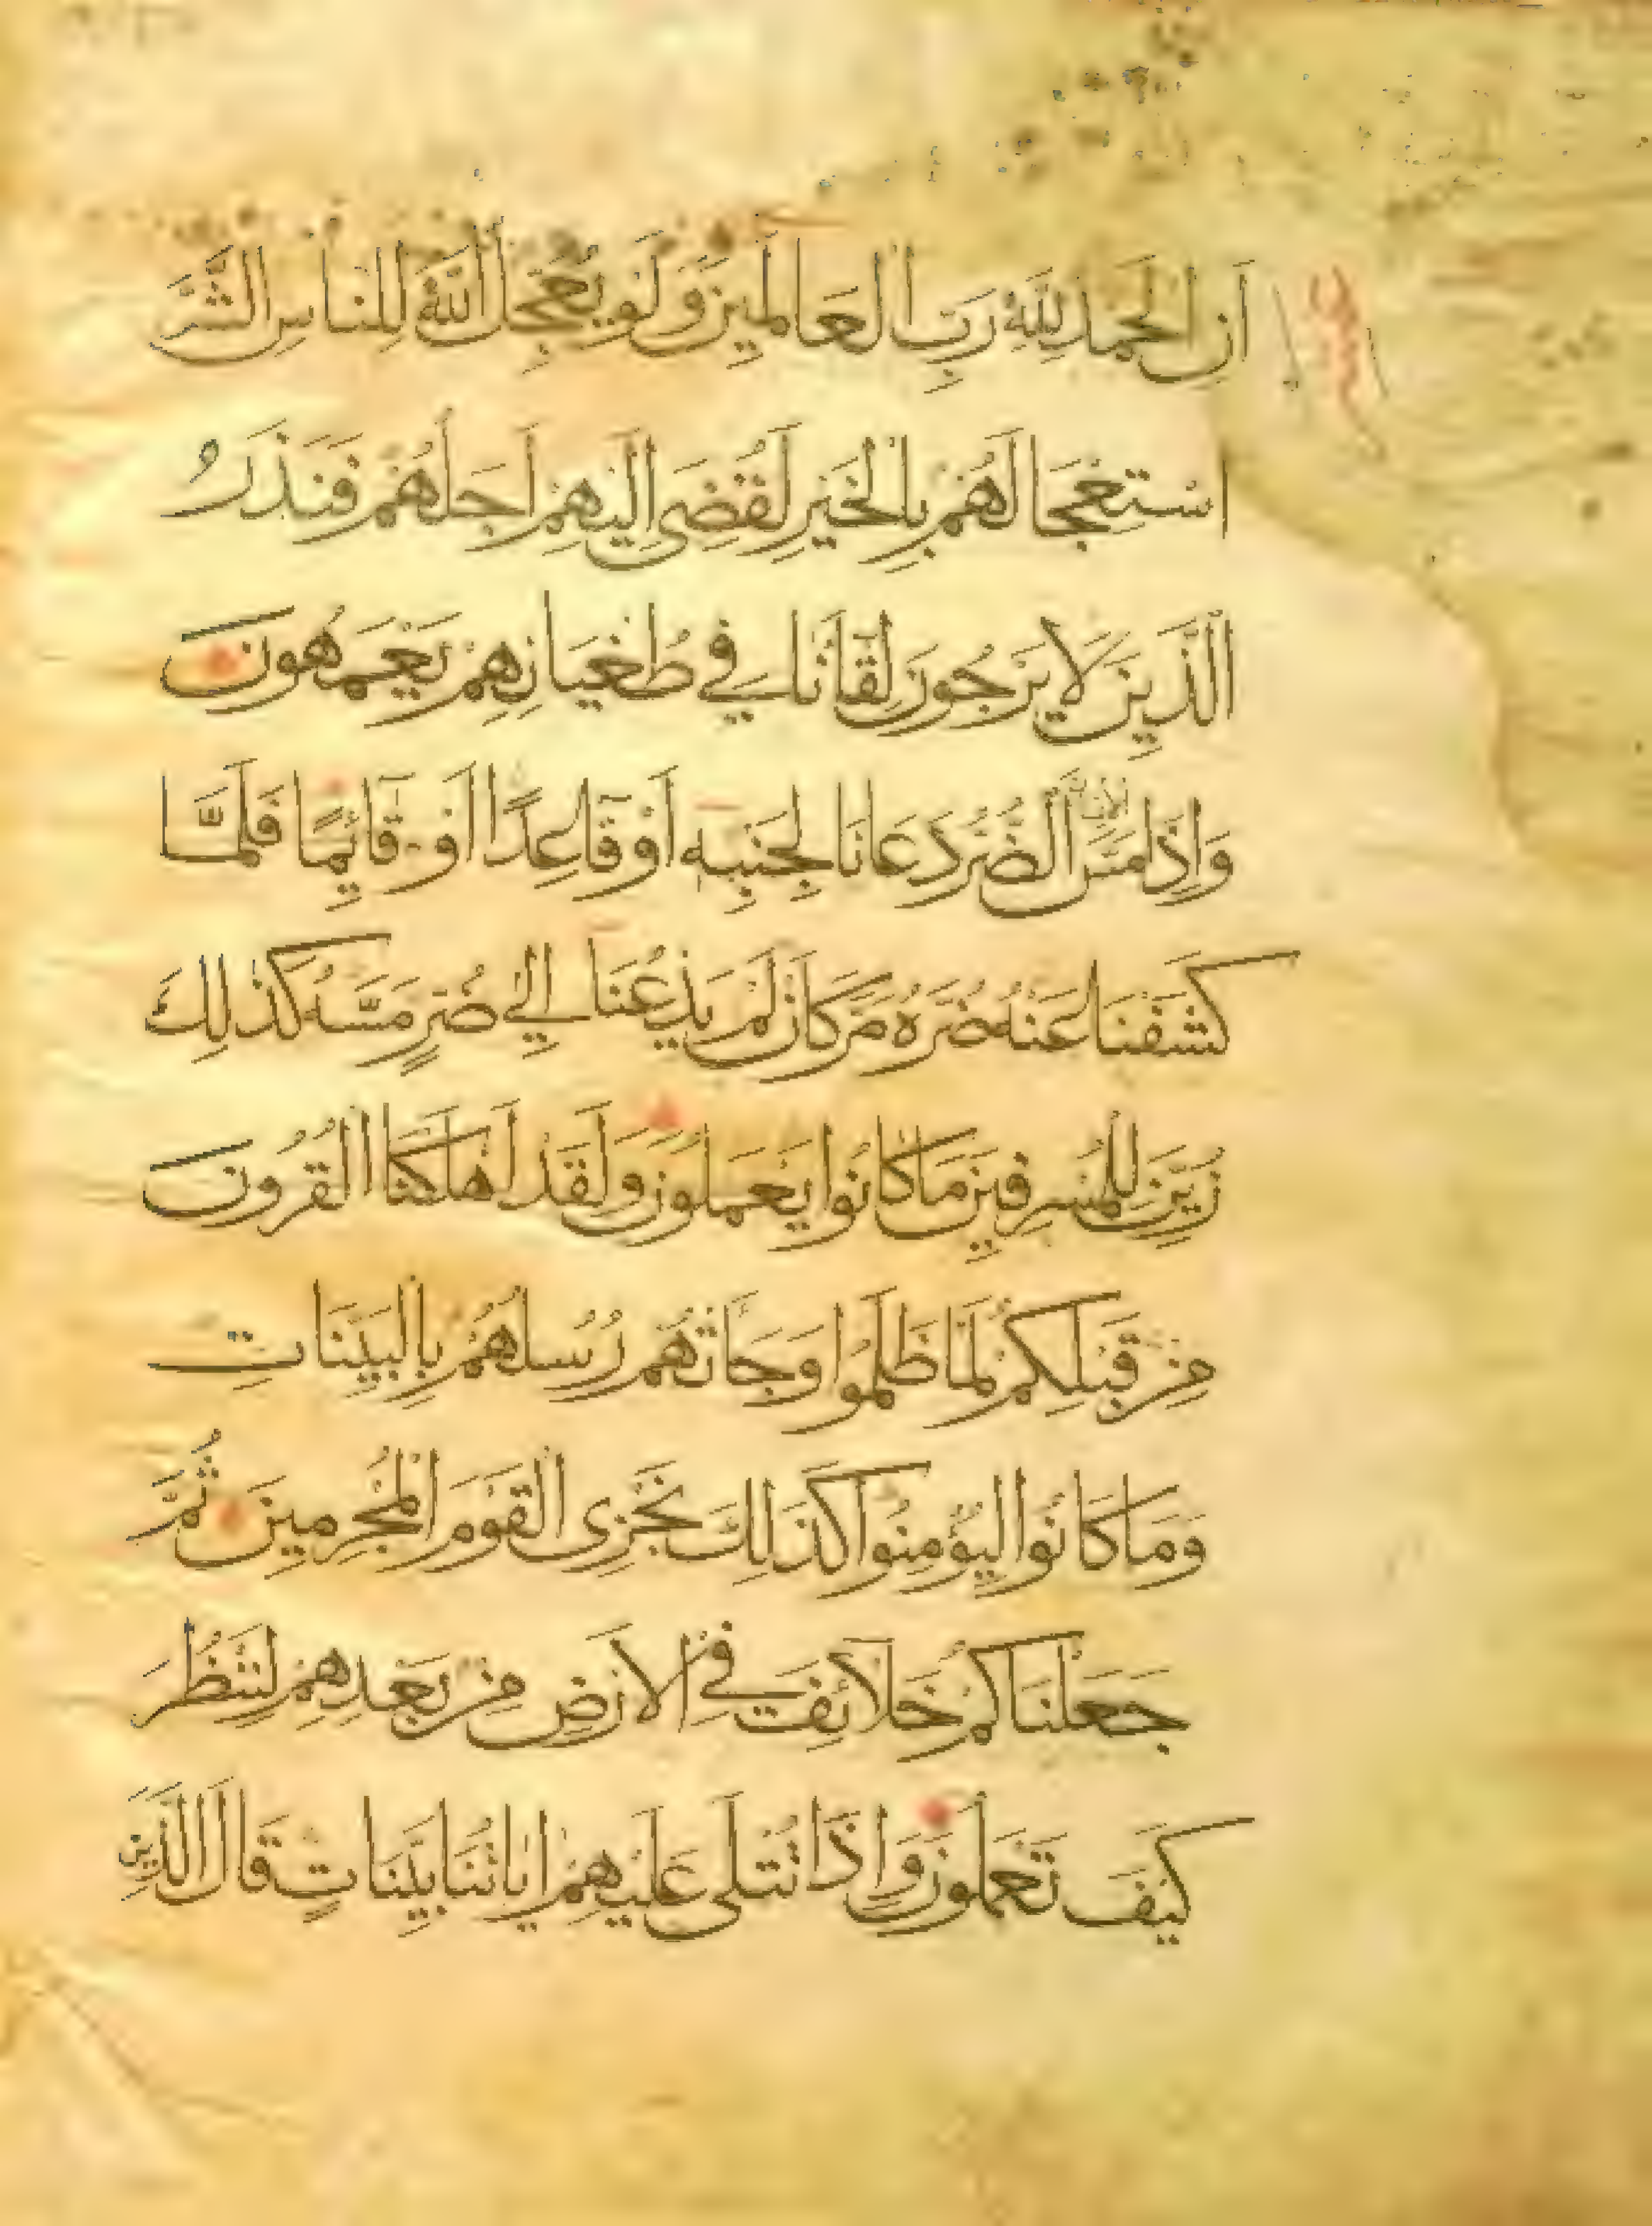 اَنِ الْحَمْدُ لِلّٰهِ رَبِّ الْعَالَمِينَ وَلَوْ يُعَجِّلُ اللّٰهُ لِلنَّاسِ الشَّرَّ
اسْتِعْجَالَهُمْ بِالْخَيْرِ لَقُضِىَ اِلَيْهِمْ اَجَلُهُمْ فَنَذَرُ
الَّذِينَ لَا يَرْجُونَ لِقَانَا فِي طُغْيَانِهِمْ يَعْمَهُونَ
وَاِذَا مَسَّ الْاِنْسَانَ الضُّرُّ دَعَانَا لِجَنْبِهِ اَوْ قَاعِدًا اَوْ قَآئِمًا فَلَمَّا
كَشَفْنَا عَنْهُ ضُرَّهُ مَرَّ كَاَنْ لَمْ يَدْعُنَا اِلٰي ضُرٍّ مَسَّهُ كَذٰلِكَ
زُيِّنَ لِلْمُسْرِفِينَ مَا كَانُوا يَعْمَلُونَ وَلَقَدْ اَهْلَكْنَا الْقُرُونَ
مِنْ قَبْلِكُمْ لَمَّا ظَلَمُوا وَجَاَتْهُمْ رُسُلُهُمْ بِالْبَيِّنَاتِ
وَمَا كَانُوا لِيُؤْمِنُوا كَذَلِكَ نَجْزِى الْقَوْمَ الْمُجْرِمِينَ ثُمَّ
جَعَلْنَاكُمْ خَلَآئِفَ فِي الْاَرْضِ مِنْ بَعْدِهِمْ لِنَنْظُرَ
كَيْفَ تَعْمَلُونَ وَاِذَا تُتْلَى عَلَيْهِمْ اٰيَاتُنَا بَيِّنَاتٍ قَالَ الَّذِينَ